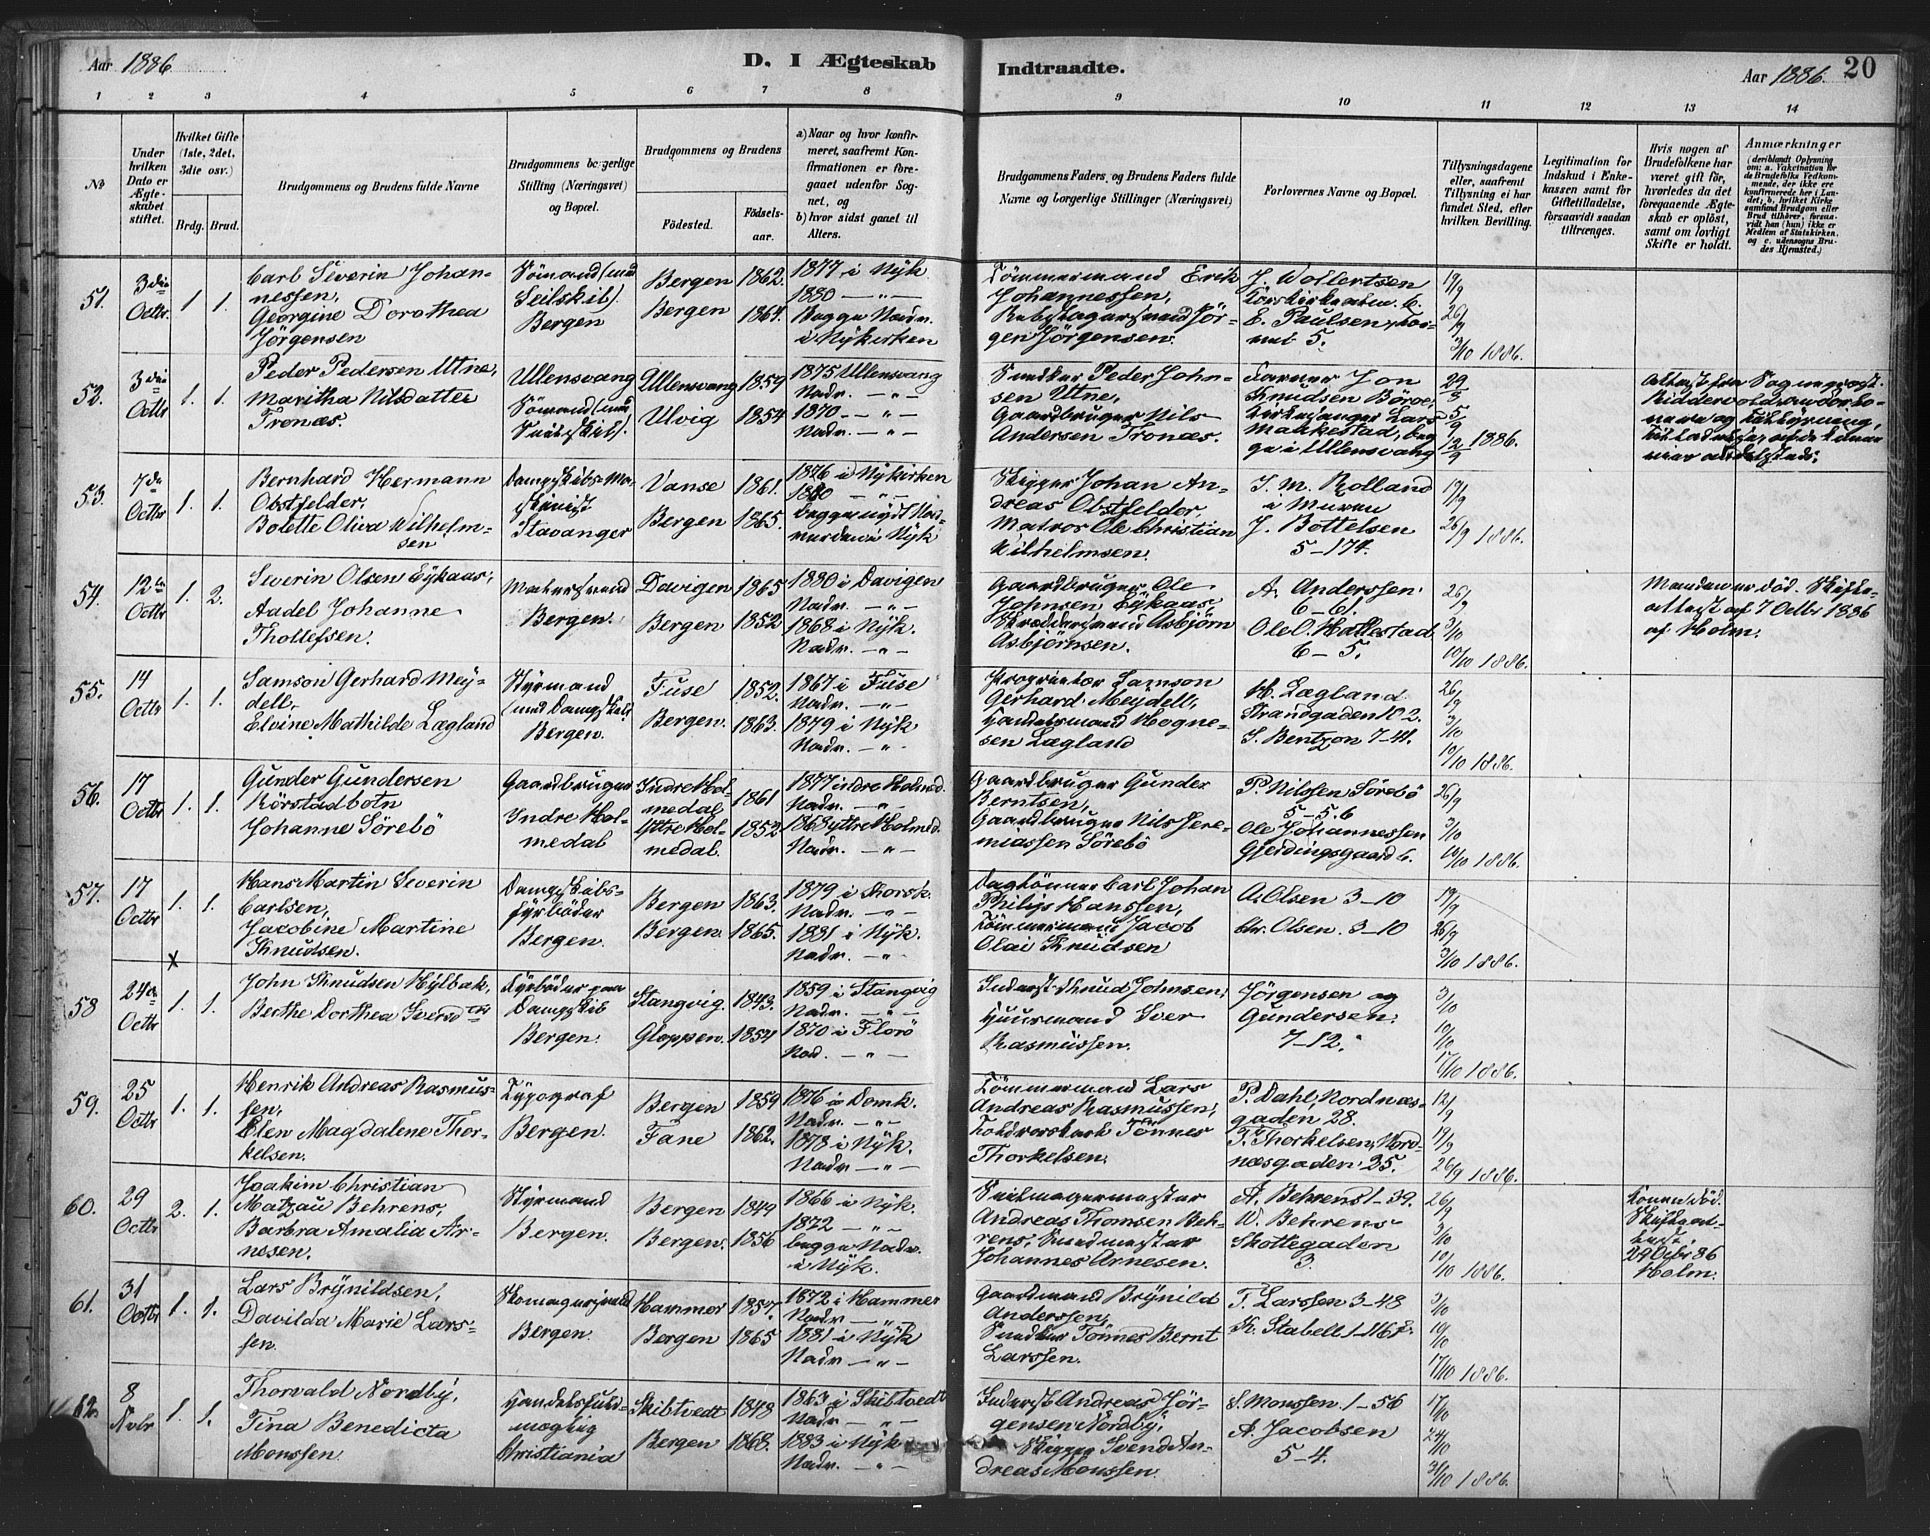 Aar 1886
D. I Ægteskab
Indtraadte.
Aar 1886. 20
1 2 3 4 5 6 7 8 9 10 11 12 13 14
No
Under hvilken Dato er Ægteskabet stiftet.
Hvilket Gifte (1ste, 2det, 3die osv.)
Brdg. Brud.
Brudgommens og Brudens fulde Navne
Brudgommens borgerlige Stilling (Næringsvei) og Bopæl.
Brudgommens og Brudens
Födested.
Födsels-aar.
a) Naar og hvor konfirmeret, saafremt Konfirmationen er foregaaet udenfor Sognet, og
b) hvor sidst gaaet til Alters.
Brudgommens Faders, og Brudens Faders fulde Navne og borgerlige Stillinger (Næringsvei)
Forlovernes Navne og Bopæl.
Tillysningsdagene eller, saafremt Tillysning ei har fundet Sted, efter hvilken Bevilling.
Legitimation for Indskud i Enkekassen samt for Giftetilladelse, forsaavidt saadan tiltrænges.
Hvis nogen af Brudefolkene har været gift för, hvorledes da det foregaaende Ægteskab er oplöst, samt om lovligt Skifte er holdt.
Anmærkninger
(deriblandt Oplysning om: a. Vakcination for de Brudefolks Vedkommende, der ikke ere konfirmerede her i Landet; b. hvilket Kirkesamfund Brudgom eller Brud tilhörer, forsaavidt han (hun) ikke er Medlem af Statskirken, og c. udensogns Brudes Hjemsted.)
51. 3die Octbr. 1. 1.
Carl Severin Johannessen,
Georgine Dorothea Jörgensen
Sömand (med Seilskib). Bergen
Bergen 1862.
Bergen 1864.
1877 i Nyk
1880 — " —
Begge Nadv. i Nykirken
Tömmermand Erik Johannessen,
Rebslagersvend Jörgen Jörgensen.
J. Wollertsen
E. Paulsen
19/9
26/9
3/10 1886.
52. 3die Octbr 1. 1.
Peder Pedersen Utne,
Maritha Nilsdatter Tronæs.
Ullensvang
Sömand (med Seilskib).
Ullensvang 1859
Ulvig 1854
1875 Ullensvang
Nadv. — " —
1870 — " —
Nadv. — " —
Peder Johnsen Utne,
Gaardbruger Nils Andersen Tronæs.
Jon Knudsen Börve,
Kirkesanger Lars Maakestad, begge i Ullensvang
29/8
5/9
12/9 1886.
53. 7de Octbr 1. 1.
Bernhard Hermann Obstfelder,
Bolette Oliva Wilhelmsen
Dampskibs-Maskinist
Stavanger
Vanse 1861.
Bergen 1865.
1876 i Nykirken
1880 — " —
Skipper Johan Andreas Obstfelder,
Matros Ole Christian Wilhelmsen.
I. M. Rolland i Muren
J. Bottelsen
5—174.
19/9
26/9 1886.
54. 12te Octbr 1. 2.
Severin Olsen Eykaas,
Aadel Johanne Thollefsen.
Malersvend
Bergen.
Davigen 1865
Bergen 1852
1880 i Davigen
Nadv. — " —
1868 i Nyk.
Nadv. — " —
Gaardbruger Ole Johnsen Eykaas,
Skræddersvend Asbjörn Asbjörnsen.
A. Anderssen
6—61.
Ole O. Hallestad
6—5.
26/9
3/10
10/10 1886.
Manden er död. Skifteattest af 7 Octbr 1886 af Holm.
55. 14 Octbr 1. 1.
Samson Gerhard Meydell,
Elvine Mathilde Lægland
Styrmand (med Dampskib) Bergen.
Fuse 1852.
Bergen. 1863.
1867 i Fuse
Nadv. — " —
1879 i Nyk
Nadv. — " —
Proprietær Samson Gerhard Meydell,
Handelsmand Hognesen Lægland
H. Lægland
Strandgaden 102.
S. Bentzon 7—41.
26/9
3/10
10/10 1886.
56. 17 Octbr 1. 1.
Gunder Gundersen Rörstadbotn
Johanne Sörebö
Gaardbruger
Indre Holmedal
Indre Holmedal 1861
Yttre Holmedal. 1852.
1877 indre Holmed.
Nadv. — " —
1868 yttre Holmed.
Nadv. — " —
Gaardbruger Gunder Berntsen,
Gaardbruger Nils Jeremiassen Sörebö
P. Nilssen Sörebö
5—5.6
Ole Johannessen
Gjerdingsgaard 6.
26/9
3/10
10/10 1886.
57. 17 Octbr 1. 1.
Hans Martin Severin Carlsen,
Jacobine Martine Knudsen.
Dampskibs-fyrböder
Bergen.
Bergen 1863.
Bergen. 1865.
1879 i Korsk.
Nadv. — " —
1881 i Nyk.
Nadv. — " —
Daglönner Carl Johan Philip Hanssen,
Tömmermand Jacob Olai Knudsen
A. Olsen 3—10
Chr. Olsen. 3—10
19/9
26/9
3/10 1886.
X
58 24de Octbr 1. 1.
John Knudsen Hylbak,
Berthe Dorthea Iversdtr
Fyrböder paa Dampskib
Bergen.
Stangvig. 1843.
Gloppen. 1854
1859 i Stangvig
Nadv. — " —
1870 i Florö
Nad. — " —
Inderst Knud Johnsen,
Huusmand Iver Rasmussen.
Jörgensen og Gundersen.
7—12.
3/10
10/10
17/10 1886.
59. 25 Octbr 1. 1.
Henrik Andreas Rasmussen,
Elen Magdalene Thorkelsen.
Typograf
Bergen.
Bergen 1859
Fane 1862.
1876 i Domk.
Nadv. — " —
1878 i Nyk.
Nadv. — " —
Tömmermand Lars Andreas Rasmussen,
Tönnes Thorkelsen.
P. Dahl, Nordnæsgaden 28.
T. Thorkelsen, Nordnæsgaden 25.
12/9
19/9
26/9 1886.
60. 29 Octbr 2. 1.
Joakim Christian Matzau Behrens,
Barbra Amalia Arnesen.
Styrmand
Bergen.
Bergen 1849
Bergen. 1856
1866 i Nyk.
1872 — " —
begge Nadv. i Nyk.
Seilmagermester Andreas Thomsen Behrens,
Johannes Arnesen.
A. Behrens 1—39.
W. Behrens
Skottegaden 3.
26/9
3/10
10/10 1886.
Konen död. Skifteattest. 29 Octbr 86 Holm.
61. 31 Octbr 1. 1.
Lars Brynildsen,
Davilda Marie Larssen.
Skomagersvend
Bergen.
Hammer 1857.
Bergen 1865
1872 i Hammer
Nadv. — " —
1881 i Nyk
Nadv. — " —
Gaardmand Brynild Anderssen,
Tönnes Bernt Larssen.
T. Larssen 3—48
K. Stabell 1—116
3/10
10/10
17/10 1886.
62. 8 Nvbr 1. 1.
Thorvald Nordby,
Tina Benedicta Monssen.
Handelsfuldmægtig
Christiania
Skibtvedt 1848
Bergen 1868.
1863 i Skibtvedt
Nadv. — " —
1883 i Nyk
Nadv. — " —
Inderst Andreas Jörgensen Nordby,
Skipper Svend Andreas Monssen.
S. Monssen. 1—56
A. Jacobsen
5—4.
17/10
24/10
31/10 1886.